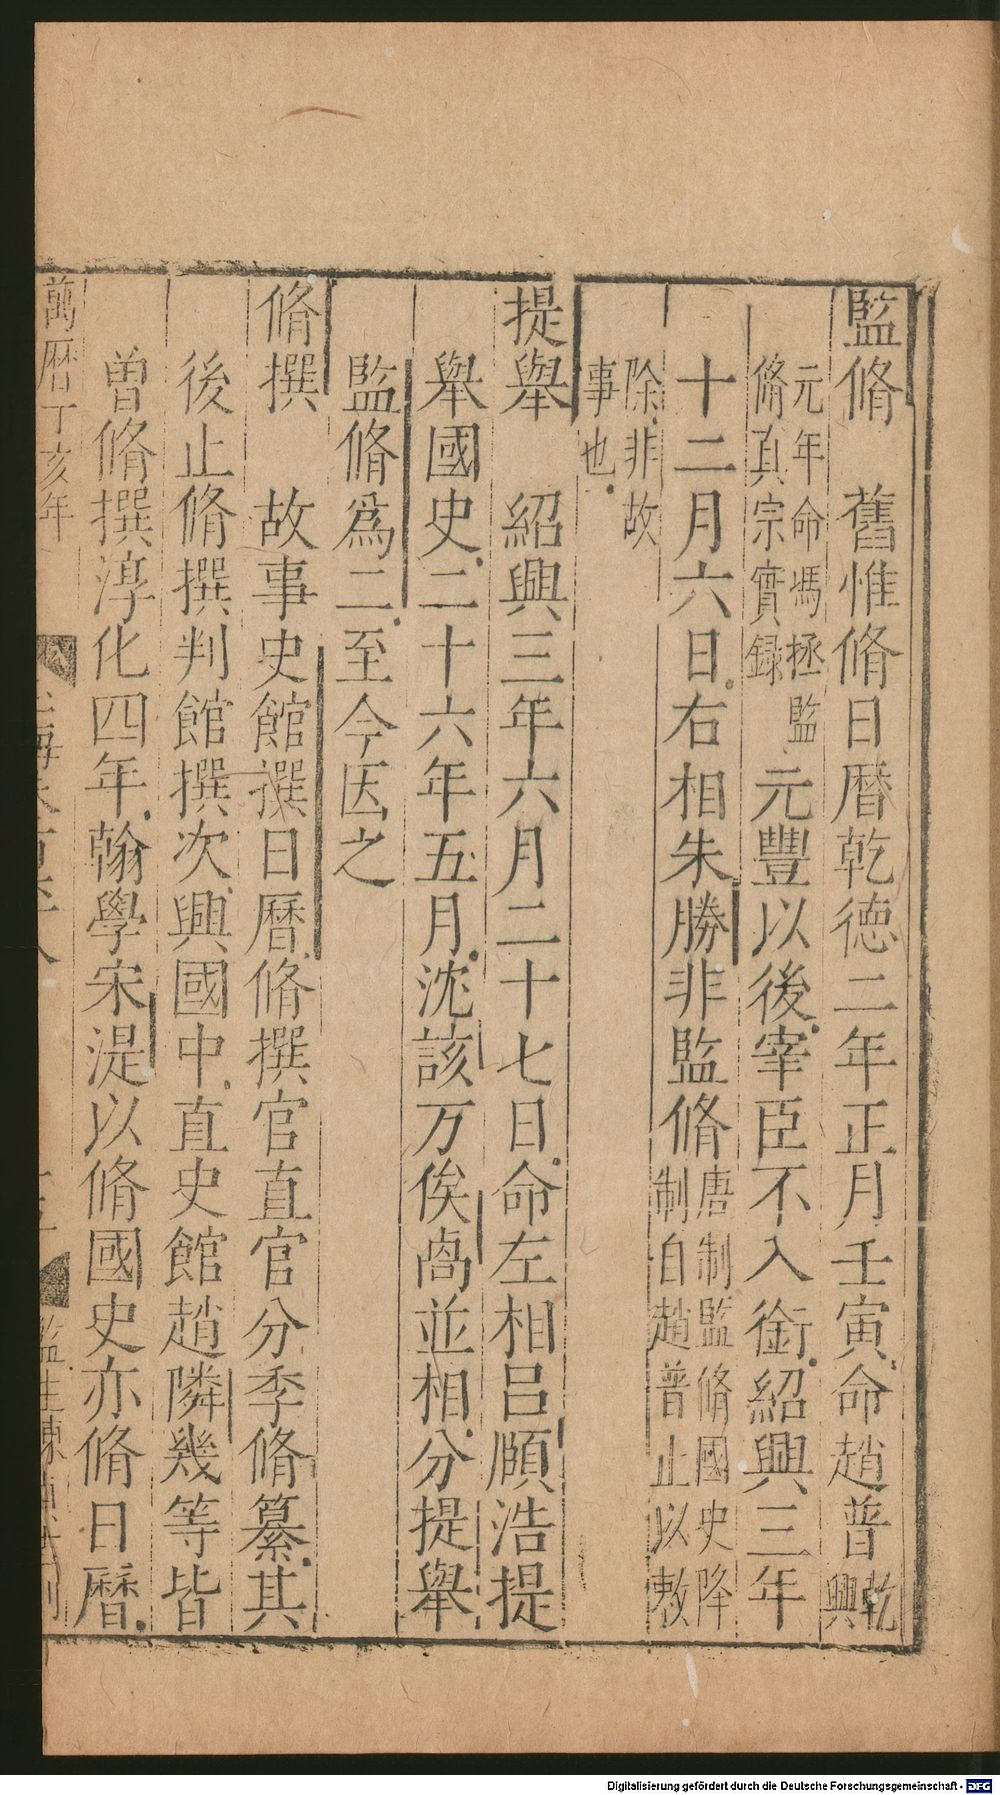 監脩　舊惟脩日曆乾德二年正月壬寅命趙普乾興
元年命馮拯監脩真宗實録元豐以後宰臣不入銜紹興三年
十二月六日右相朱勝非監脩唐制監脩國史降制自趙普止以敕
除非故事也
提舉　紹興三年六月二十七日命左相呂頤浩提
舉國史二十六年五月沈該万俟卨並相分提舉
監脩爲二至今因之
脩撰　故事史館撰日曆脩撰官直官分季脩纂其
後止脩撰判館撰次興國中直史館趙隣幾等皆
曽脩撰淳化四年翰學宋湜以脩國史亦脩日曆
萬曆丁亥年
監生陳
Digitalisierung gefördert durch die Deutsche Forschungsgemeinschaft - DFG